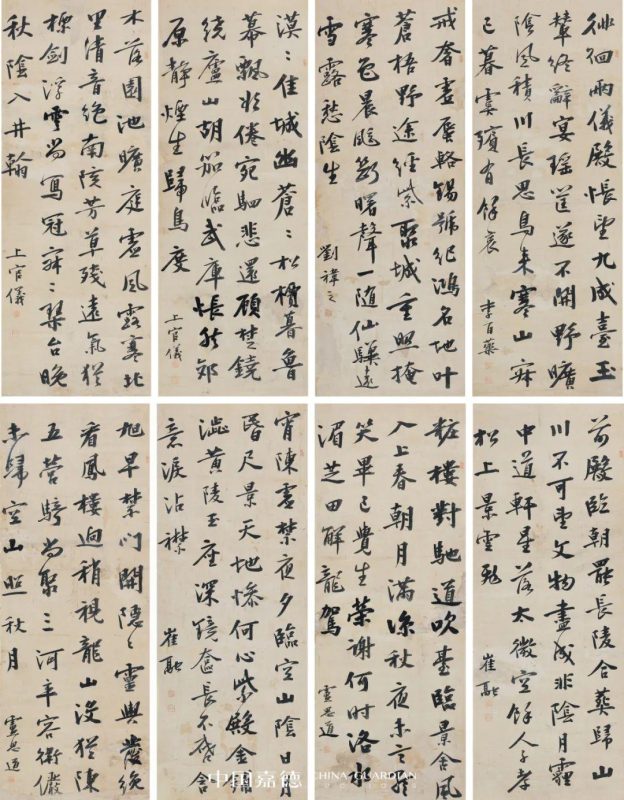 徘徊兩儀殿悵望九成臺玉
輦終辭宴瑤筐遂不開野曠
陰風積川長思鳥來寒山寂
已暮虞殯有餘哀 李百藥
戒奢虛蜃輅錫號紀鴻名地叶
蒼梧野途經紫聚城重照掩
寒色晨飈斷曙聲一隨仙驥遠
雪露愁陰生 劉禕之
漠〻佳城幽蒼〻松檟暮魯
幕飄欲倦宛駟悲還顧楚鐃
繞廬山胡笳臨武庫悵然郊
原靜煙生歸鳥度 上官儀
木落園池曠庭虛風露寒北
里清音絕南陔芳草殘遠氣猶
標劍浮雲尚寫冠寂〻琴台晚
秋陰入井翰 上官儀
前殿臨朝罷長陵合葬歸山
川不可望文物盡成非陰月霾
中道軒星落太微空餘人子孝
松上景雲飛 崔融
粧樓對馳道吹臺臨景舍風
入上春朝月滿涼秋夜未言歌
笑畢已覺生榮謝何時洛水
湄芝田解龍駕 盧思道
宵陳虛禁夜夕臨空山陰日月
昏尺景天地慘何心紫殿金鋪
澁黃陵玉座深鏡奩長不啓含
意淚沾襟 崔融
旭旦禁門開隱〻靈輿發纔
看鳳樓迥稍視龍山沒猶陳
五營騎尚聚三河卒容衛儼
未歸空山照秋月 盧思道
中国嘉德 CHINA GUARDIAN